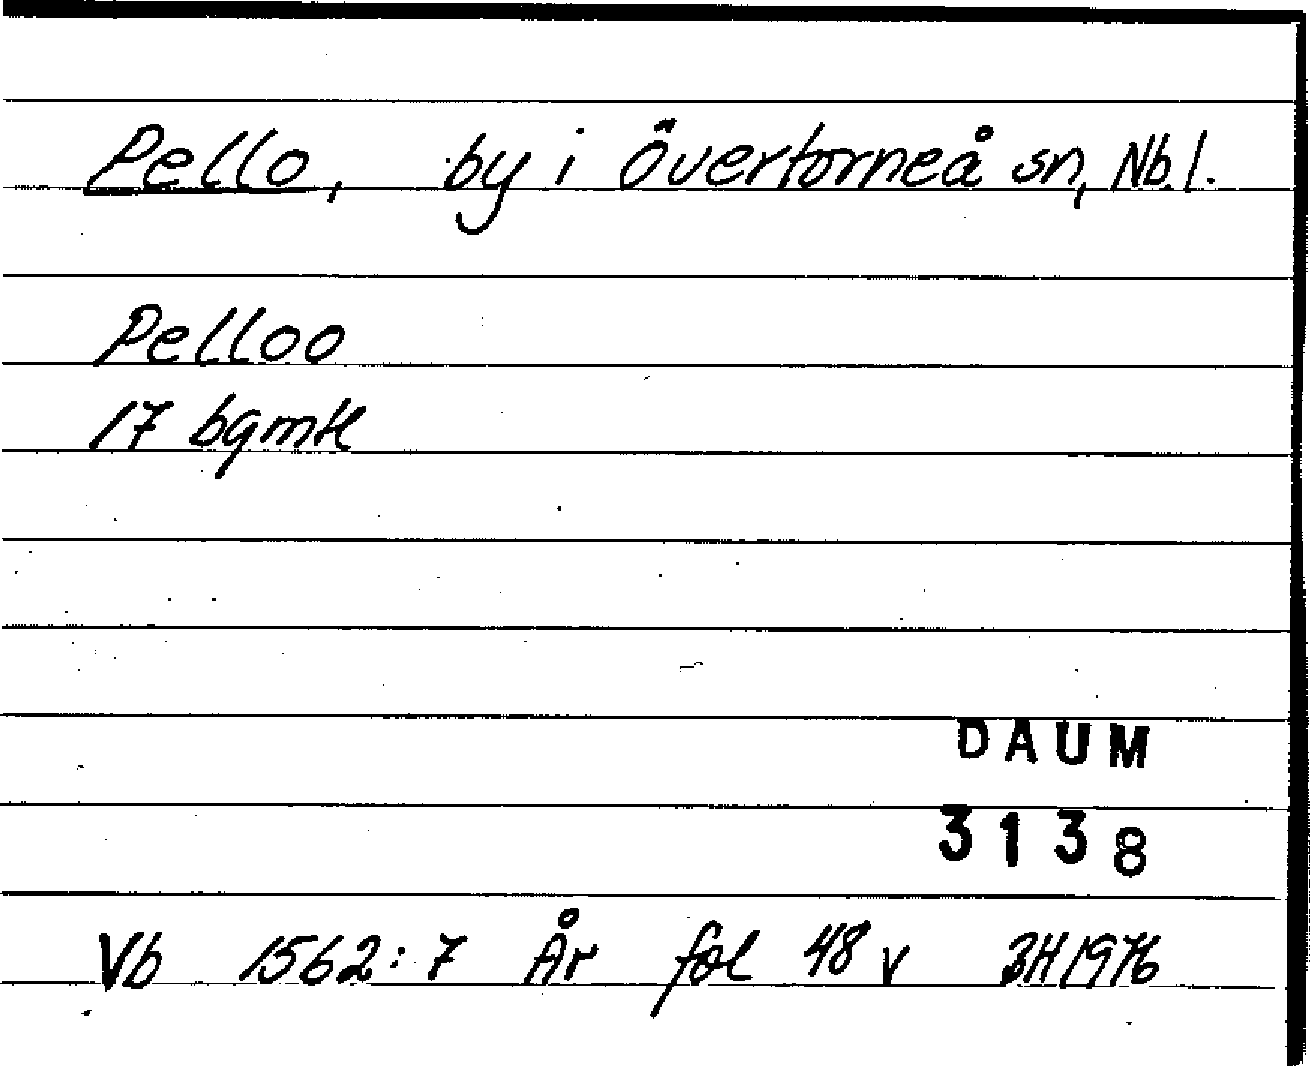 Pello, by i Övertorneå sn, Nb.l.
Pelloo
17 bgmtl
DAUM
3138
Vb 1562:7 År fol 48 v BH 1976